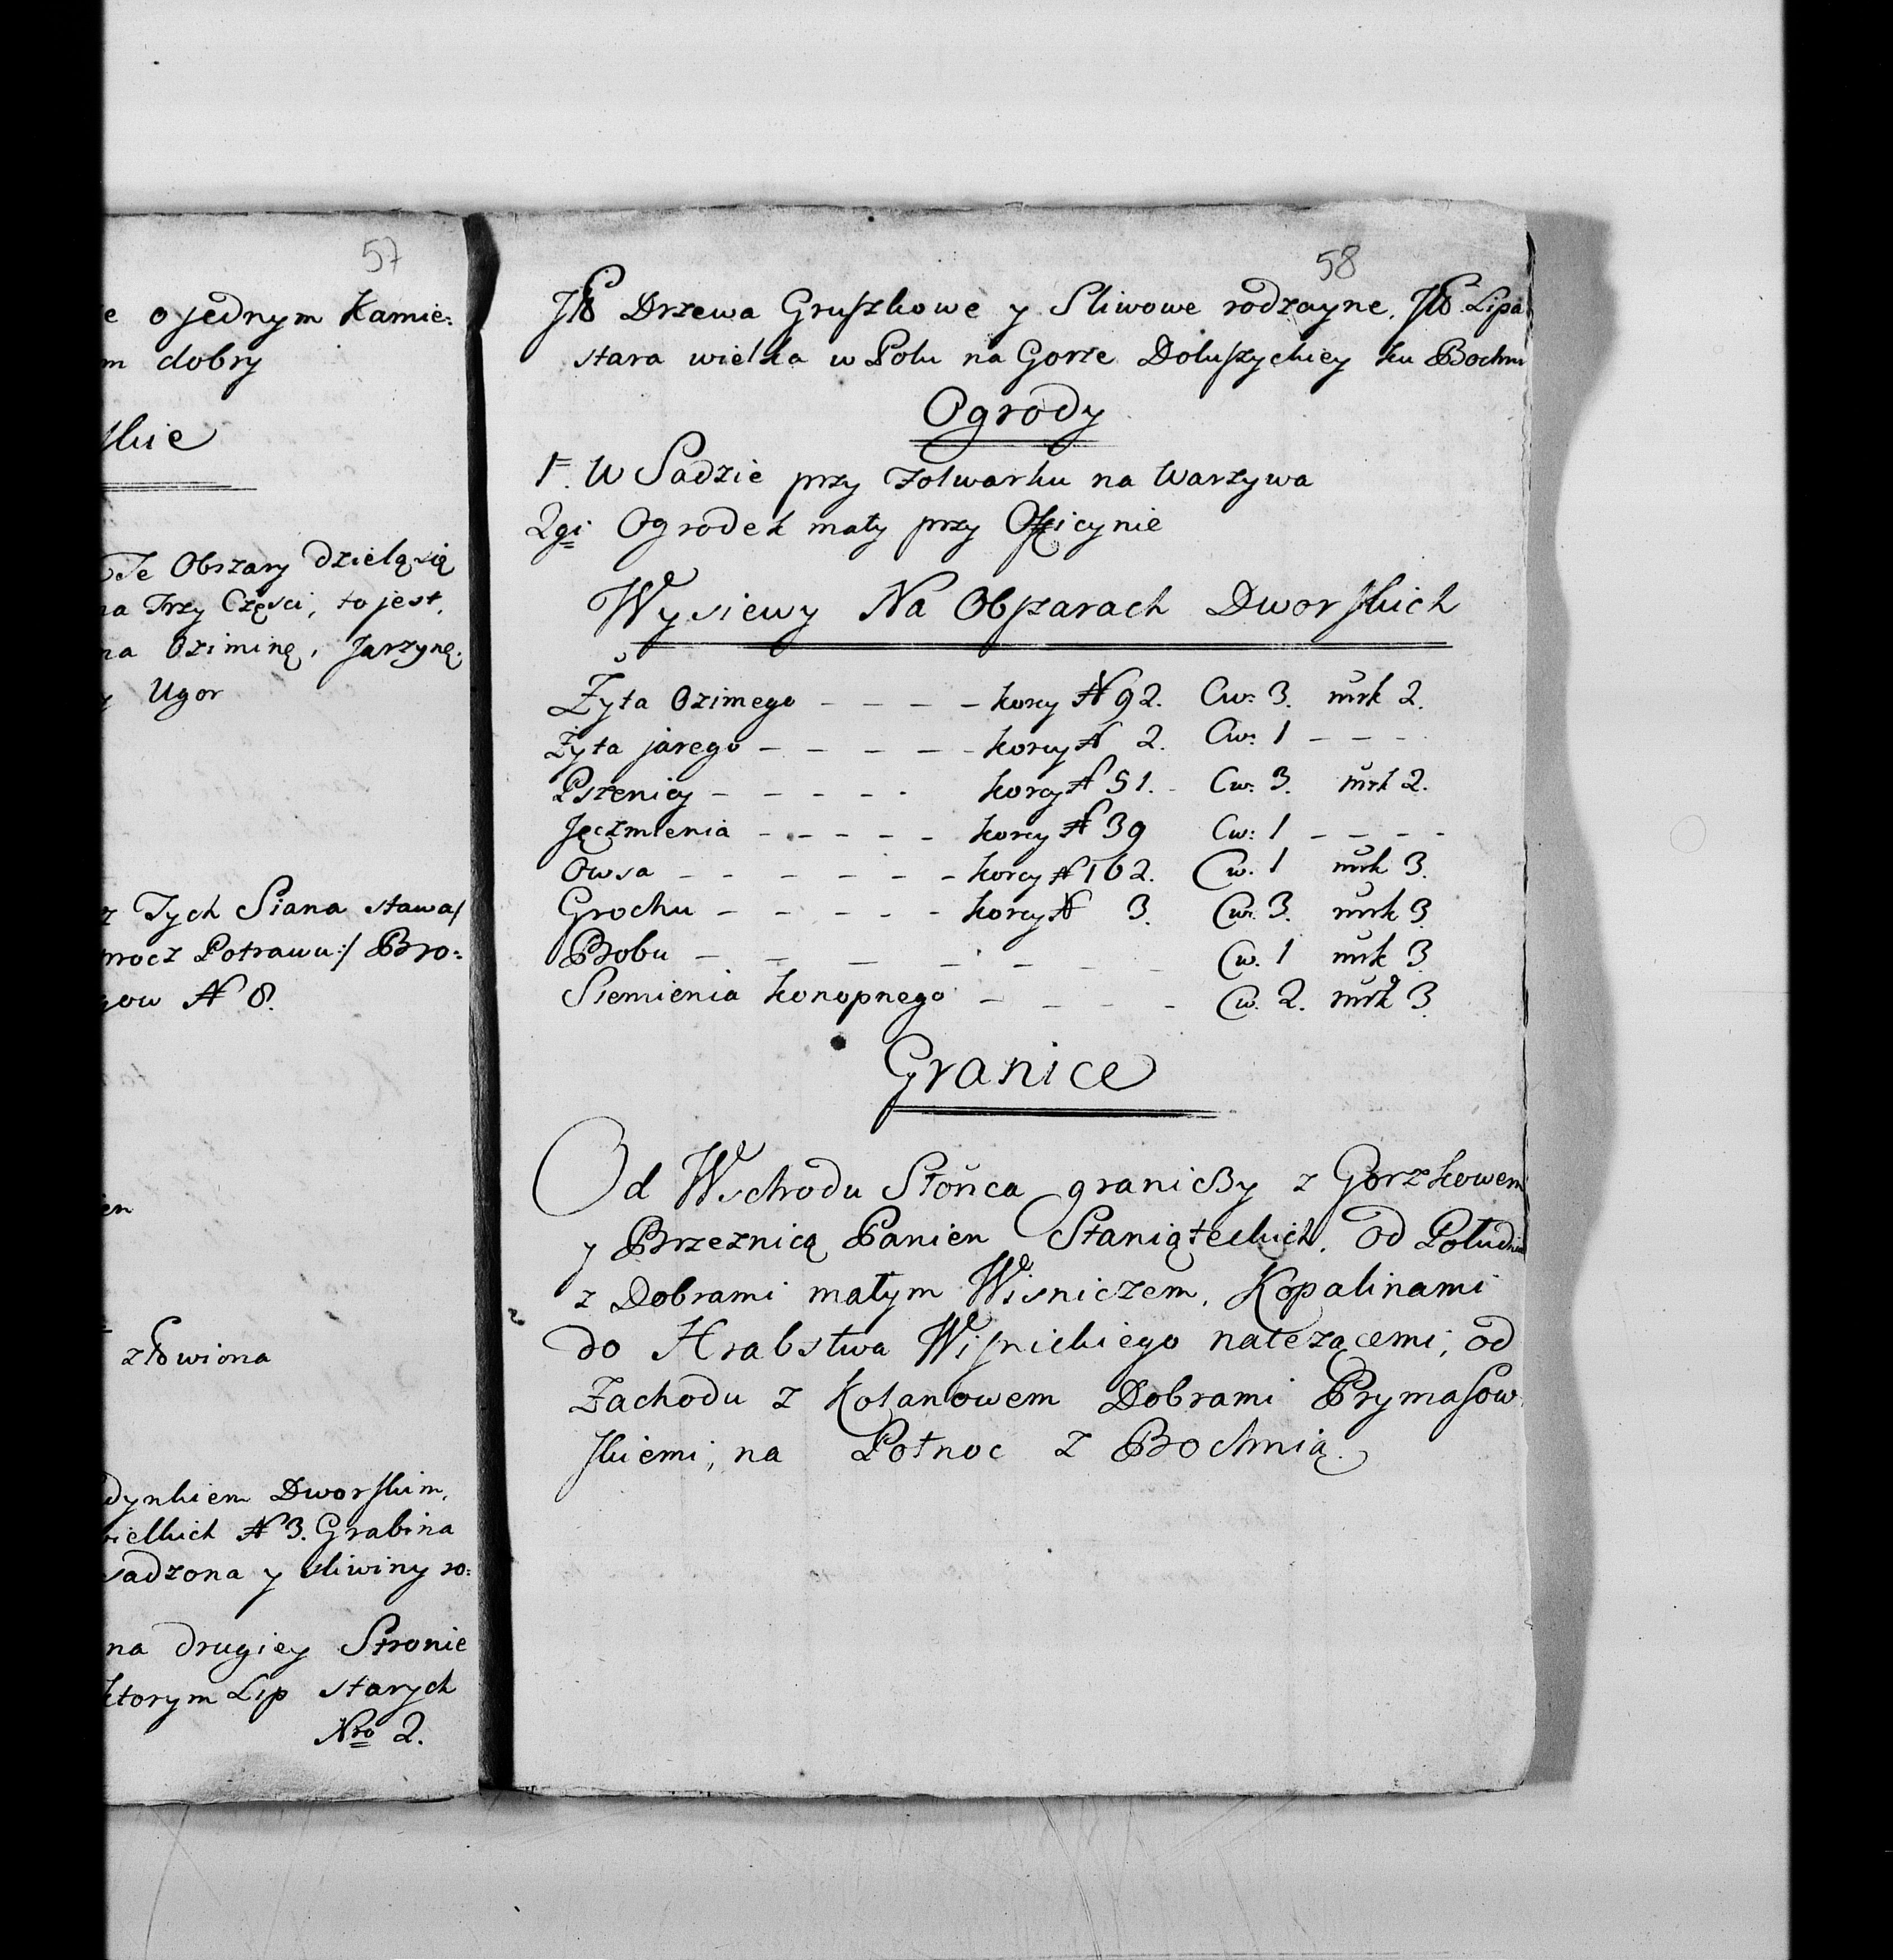 57
e o jednym Kamie:
m dobry
skie
Te Obszary Dzielą się
na Trzy Części, to jest,
na Oziminę, Jarzynę,
y Ugor
z Tych Siana stawa/
procz Potrawu:/ Bro:
gow N 8.
złowiona
dynkiem Dworskim,
wielkich N 3. Grabina
sadzona y sliwiny ro:
na drugiey Stronie
ktorym Lip starych
Nro 2.
58
Jt Drzewa Gruszkowe y Sliwowe rodzayne. Jt. Lipa
stara wielka w Polu na Gorze Dołuszyckiey ku Bochni
Ogrody
1. W Sadzie przy Folwarku na Warzywa
2gi Ogrodek mały przy Oficynie
Wysiewy Na Obszarach Dworskich
Żyta Ozimego - - - - korcy N 92. Cw: 3. mrk 2.
Żyta jarego - - - - - korcy N 2. Cw: 1 - - - -
Pszenicy - - - - - korcy N 51. Cw: 3. mrk 2.
Jęczmienia - - - - - korcy N 39 Cw: 1 - - - -
Owsa - - - - - - korcy N 162. Cw. 1 mrk 3.
Grochu - - - - - korcy N 3. Cw. 3. mrk 3.
Bobu - - - - - - - - Cw. 1 mrk 3.
Siemienia Konopnego - - - - Cw. 2. mrk 3.
Granice
Od Wschodu Słońca graniczy z Gorzkowem
y Brzeznicą Panien Staniąteckich. Od Południa
z Dobrami małym Wisniczem, Kopalinami
do Hrabstwa Wisnickiego należącemi, od
Zachodu z Kolanowem Dobrami Prymasow
skiemi, na Połnoc z Bochnią.